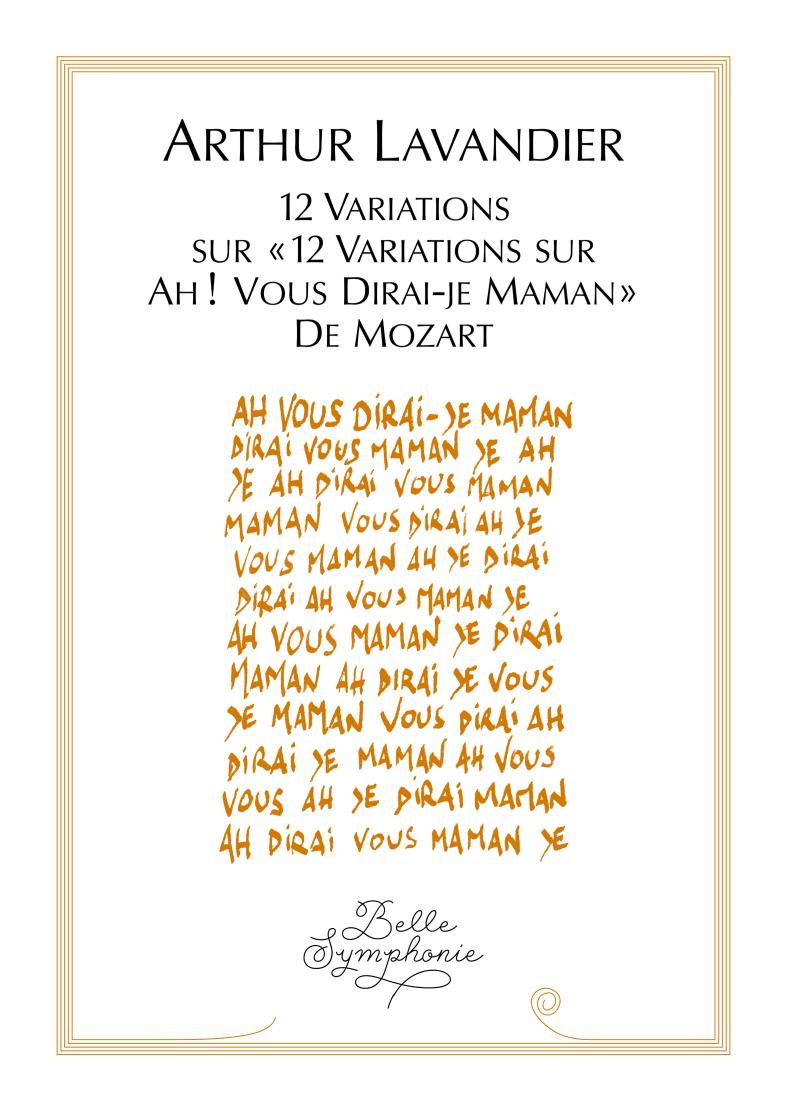 ARTHUR LAVANDIER
12 VARIATIONS
SUR «12 VARIATIONS SUR
AH! VOUS DIRAI-JE MAMAN»
DE MOZART
AH VOUS DIRAi-JE MAMAN
DIRAi VOUS MAMAN JE AH
JE AH DiRAi VOUS MAMAN
MAMAN VOUS DiRAi AH JE
VOUS MAMAN AH JE DiRAi
DiRAi AH VOUS MAMAN JE
AH VOUS MAMAN JE DiRAi
MAMAN AH DiRAi JE VOUS
JE MAMAN VOUS DiRAi AH
DiRAi JE MAMAN AH VOUS
VOUS AH JE DiRAi MAMAN
AH DiRAi VOUS MAMAN JE
Belle
Symphonie